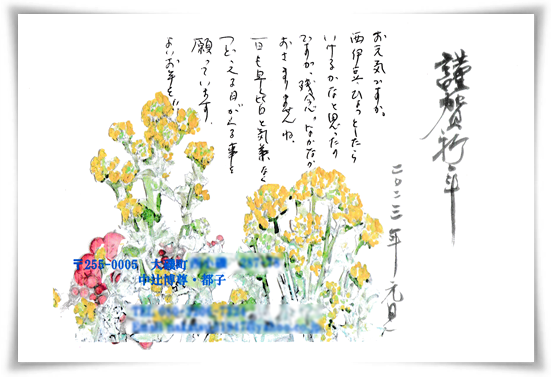 謹賀新年
二〇二三年 元旦
お元気ですか。
西伊豆、ひょっとしたら
いけるかなと思ったり
ですが、残念。なかなか
おさまりませんね。
一日も早く皆と気兼なく
つどえる日がくる事を
願っています。
よいお年を
〒255-0005 大磯町
中辻博尊・都子